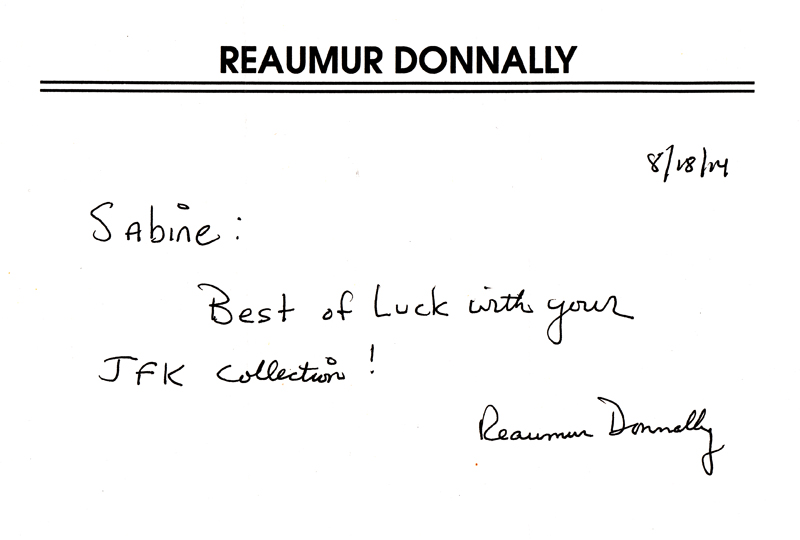 REAUMUR DONNALLY
8/18/14
Sabine:
Best of Luck with your
JFK Collection!
Reaumur Donnally